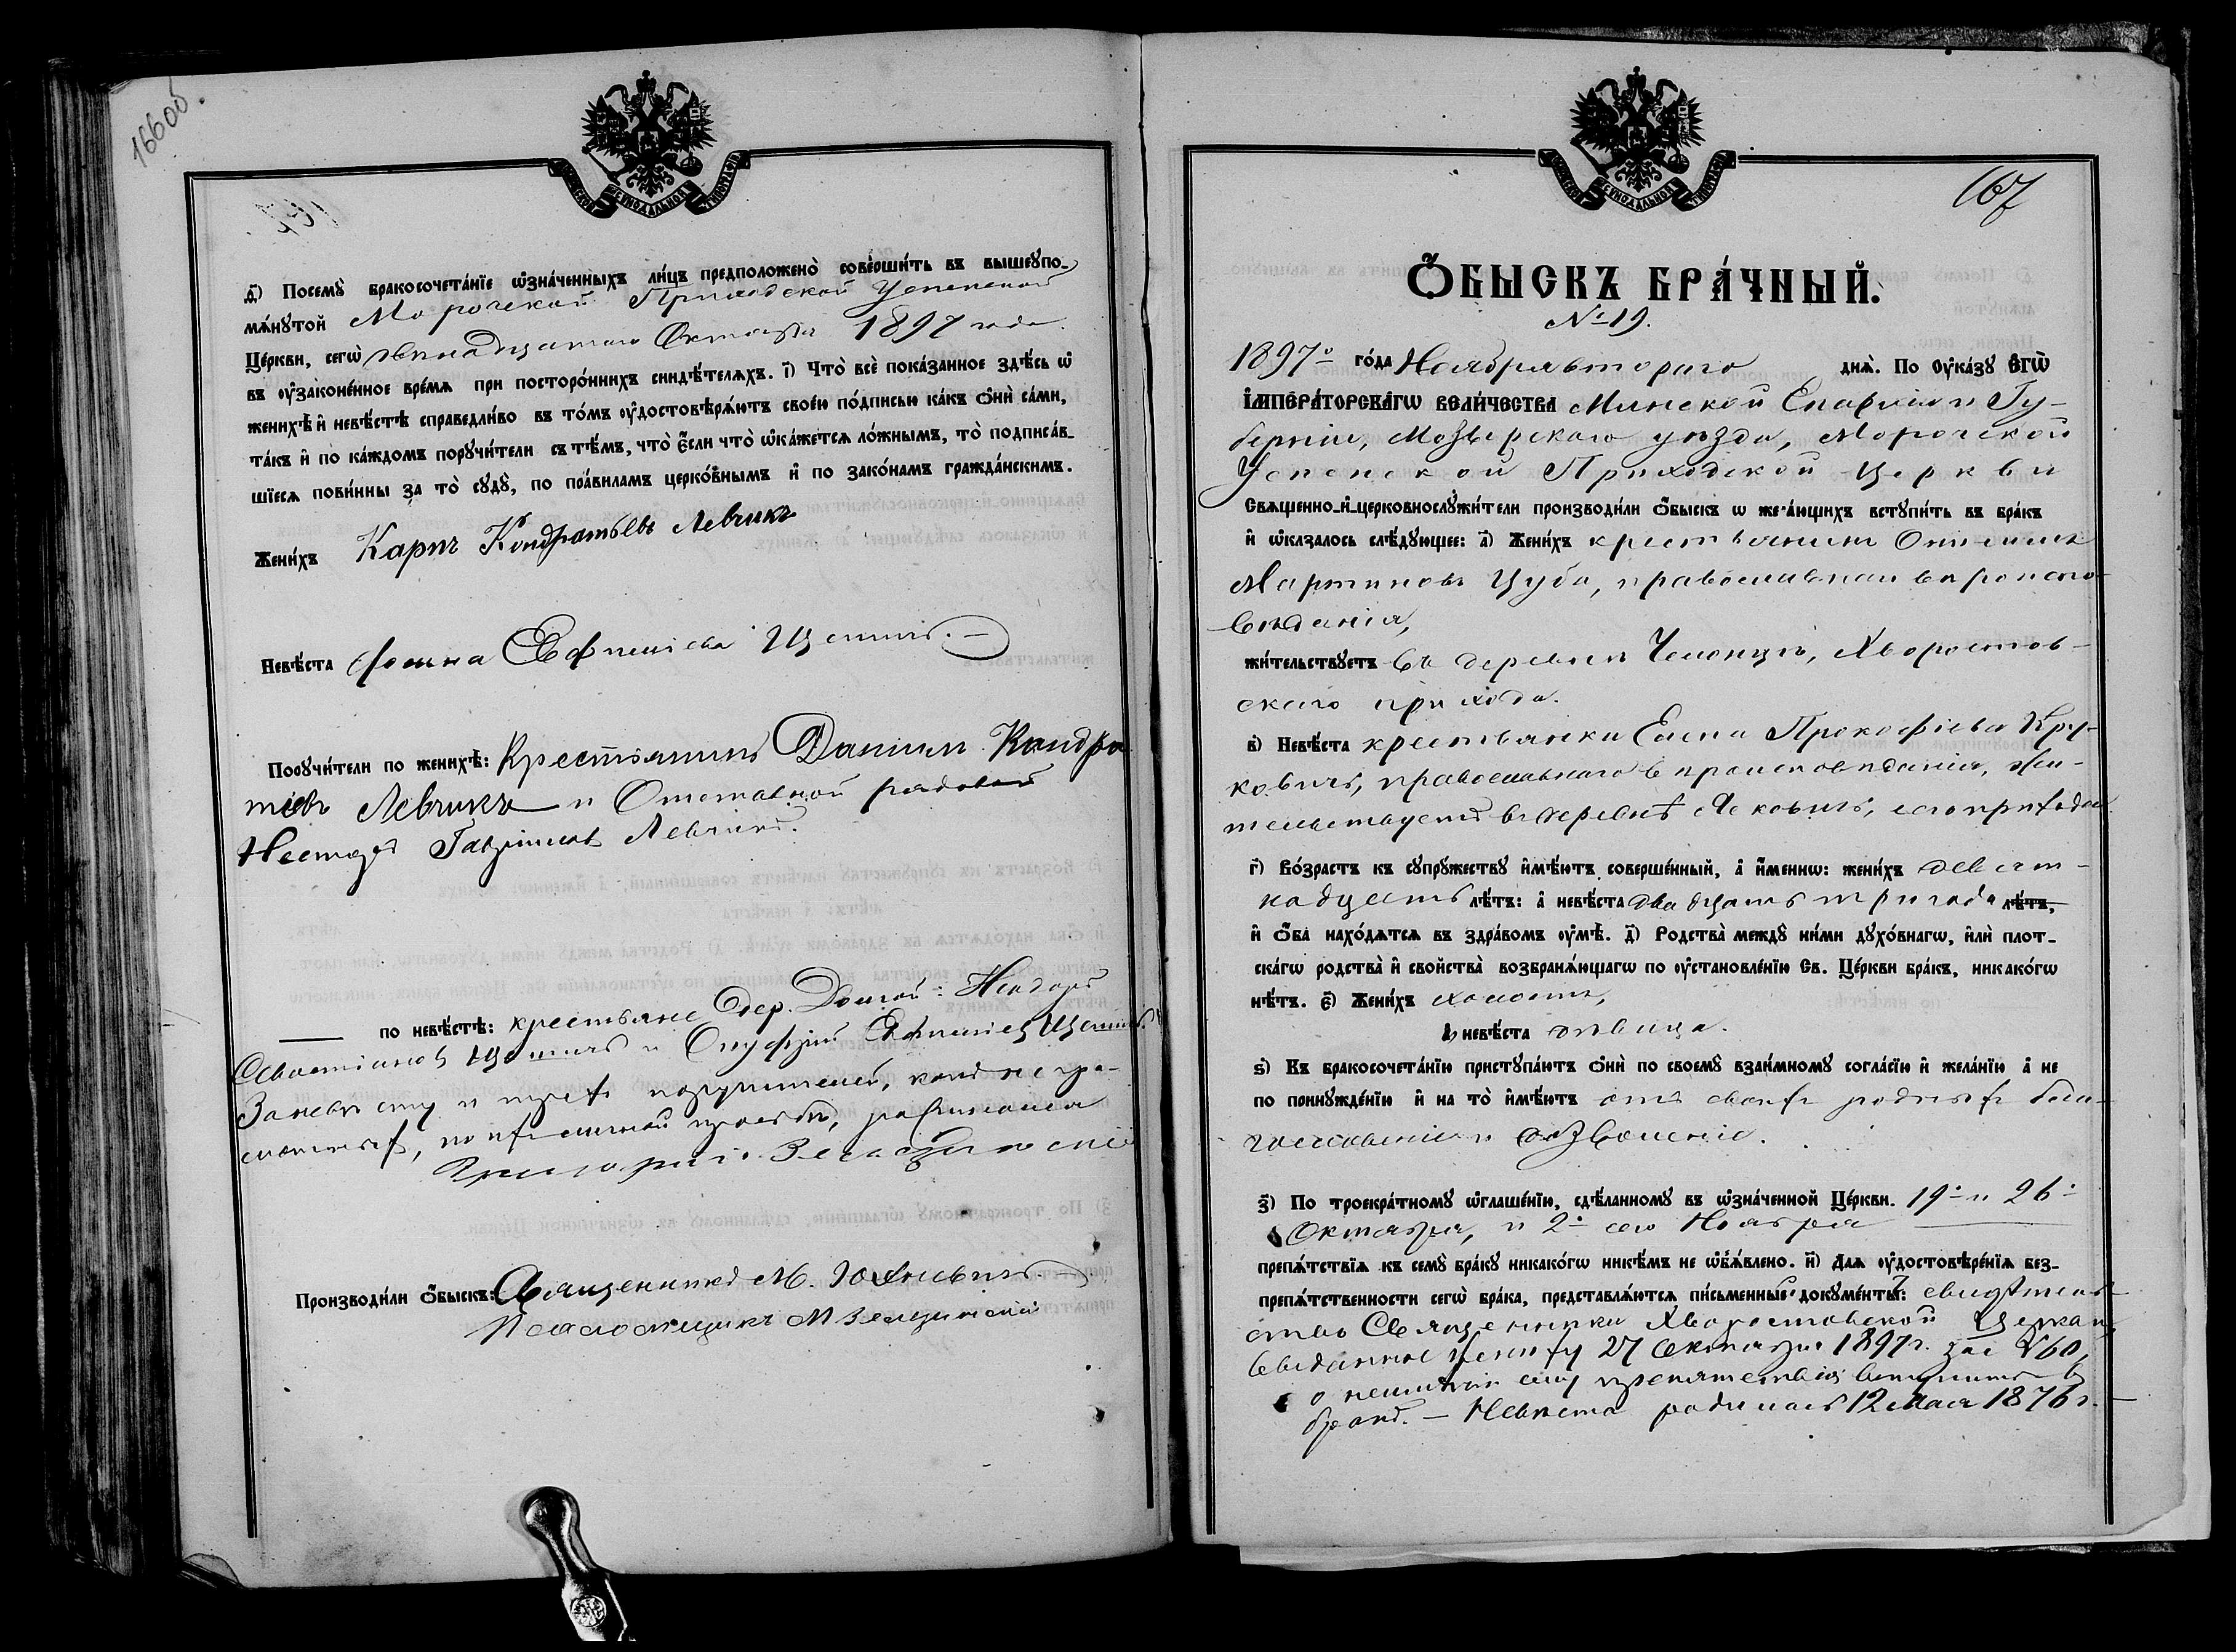 166об.
СУНОДАЛЬНОЙ ТИПОГРАФІИ
д҃) Посемꙋ̀ бракосочета́нїе ѡ҆зна́ченныхъ ли́цъ предположено̀ соверши́ть въ вышеꙋпо-
мѧ́нꙋтой Морочской Приходской Успенской
Це́ркви, сегѡ̀ двенадцатаго Октября 1897 года.
въ ᲂу҆зако́не́нное вре́мѧ при посторо́ннихъ свидѣ́телѧхъ. і҃) Что̀ всѐ пока́занное здѣ́сь ѡ҆
женихѣ̀ и҆ невѣ́стѣ справедли́во въ то́мъ ᲂу҆достовѣрѧ́ютъ свое́ю по́дписью ка́къ ѻ҆нѝ са́ми,
та́къ и҆ по ка́ждомъ порꙋчи́тели съ тѣ́мъ, что̀ є҆́сли что̀ ѡ҆ка́жетсѧ ло́жнымъ, то̀ подписа́в-
шїесѧ пови́нны за то̀ сꙋдꙋ̀, по пра́виламъ церко́внымъ и҆ по зако́намъ гражда́нскимъ.
Жени́хъ Карпъ Кондратьевъ Левчикъ
Невѣ́ста Ефимiева
Порꙋчи́тели по женихѣ̀: Крестьянинъ Данiилъ Кондра
тiевъ Левчикъ и Отставной рядовой
Несторъ Гаврiиловъ Левчикъ.
по невѣ́стѣ: крестьяне дер. Долгой:
Севастiановъ и Онуфрiй
За невѣсту и поручителей, неграмотныхъ,
по ихъ личной просьбѣ, росписался
Григорiй
Производи́ли ѻ҆́быскъ: Священникъ М. Юхневичъ.
Псаломщикъ М
СУНОДАЛЬНОЙ ТИПОГРАФІИ
167
Ѻ҆́БЫСКЪ БРА́ЧНЫЙ.
№ 19.
1897го го́да Ноября втораго днѧ̀. По ᲂу҆ка́зꙋ Є҆гѡ̀
І҆мпера́торскагѡ вели́чества Минской Епархiи и Гу-
бернiи, Мозырскаго уѣзда, Морочской
Успенской Приходской церкви
Свѧще́нно-и҆-церковнослꙋжи́тели производи́ли ѻ҆́быскъ ѡ жела́ющихъ встꙋпи́ть въ бра́къ
и҆ ѡ҆каза́лось слѣ́дꙋющее: а҃) Жени́хъ крестьянинъ
Мартиновъ Цуба, православнаго вѣроиспо-
вѣданiя,
жи́тельствꙋетъ въ деревнѣ Хоростов-
скаго прихода.
в҃) Невѣ́ста крестьянка Елена Прокофiева Кру-
ковичъ, православнаго вѣроисповѣданiя, жи-
тельствуетъ въ деревнѣ сего прихода
г҃) Во́зрастъ къ сꙋпрꙋ́жествꙋ и҆мѣ́ютъ соверше́нный, а҆ и҆́меннѡ: жени́хъ девят-
надцать лѣ́тъ: а҆ невѣ́ста двадцать три года лѣ́тъ,
и҆ ѻ҆́ба нахо́дѧтсѧ въ здра́вомъ ᲂу҆мѣ̀. д҃) Родства̀ междꙋ̀ ни́ми дꙋхо́внагѡ, и҆лѝ плот-
ска́гѡ родства̀ и҆ сво́йства возбранѧ́ющагѡ по ᲂу҆становле́нїю Св. Це́ркви бра́къ, никако́гѡ
нѣ́тъ. є҃) Жени́хъ холостъ,
невѣ́ста дѣвица.
ѕ҃) Къ бракосочета́нїю пристꙋпа́ютъ ѻ҆нѝ по своемꙋ̀ взаи́мномꙋ согла́сїю и҆ жела́нїю а҆ не
по принꙋжде́нїю и҆ на то̀ и҆мѣ́ютъ отъ своихъ родныхъ благо-
гословенiе и дозволенiе.
з҃) По троекра́тномꙋ ѡ҆глаше́нїю, сдѣ́ланномꙋ въ ѡ҆зна́ченной Це́ркви. 19го и 26го
Октября, и 2го сего Ноября
препѧ́тствїѧ къ семꙋ̀ бра́кꙋ никако́гѡ никѣ́мъ не ѡ҆б̾ѧ́влено. и҃) Длѧ ᲂу҆достовѣре́нїѧ без-
препѧ́тственности сегѡ̀ бра́ка, представлѧ́ютсѧ пи́сьменные докꙋме́нты: свидѣтель-
ство Священника Хоростовской Церкви,
выданное жениху 27 Октября 1897 г. за № 60,
о неимѣнiи ему препятствiя вступить въ
бракъ. — Невѣста родилась 12 Мая 1876 г.